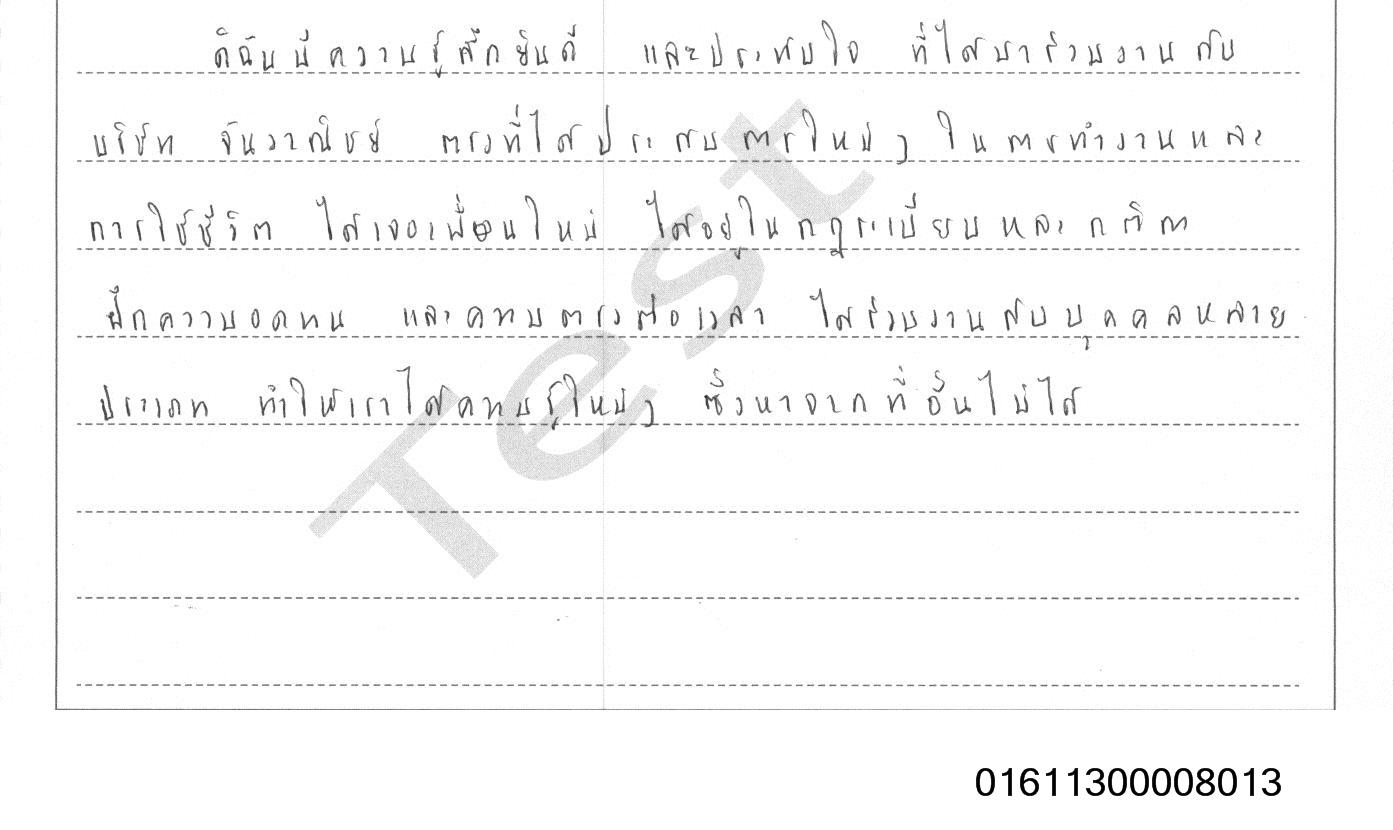 ดิฉันมีความรู้สึกยินดี และประทับใจ ที่ได้มาร่วมงานกับ
บริษัท จันวาณิชย์ ตรงที่ได้ประสบการใหม่ๆ ในการทำงานและ
การใช้ชีวิต ได้เจอะเพื่อนใหม่ ได้อยู่ในกฎระเบียบและกติกา
ฝึกความอดทน และความตรงต่อเวลา ได้ร่วมงานกับบุคคลหลาย
ประเภท ทำให้เราได้ความรู้ใหม่ๆ ซึ่งหาจากที่อื่นไม่ได้
Test
01611300008013